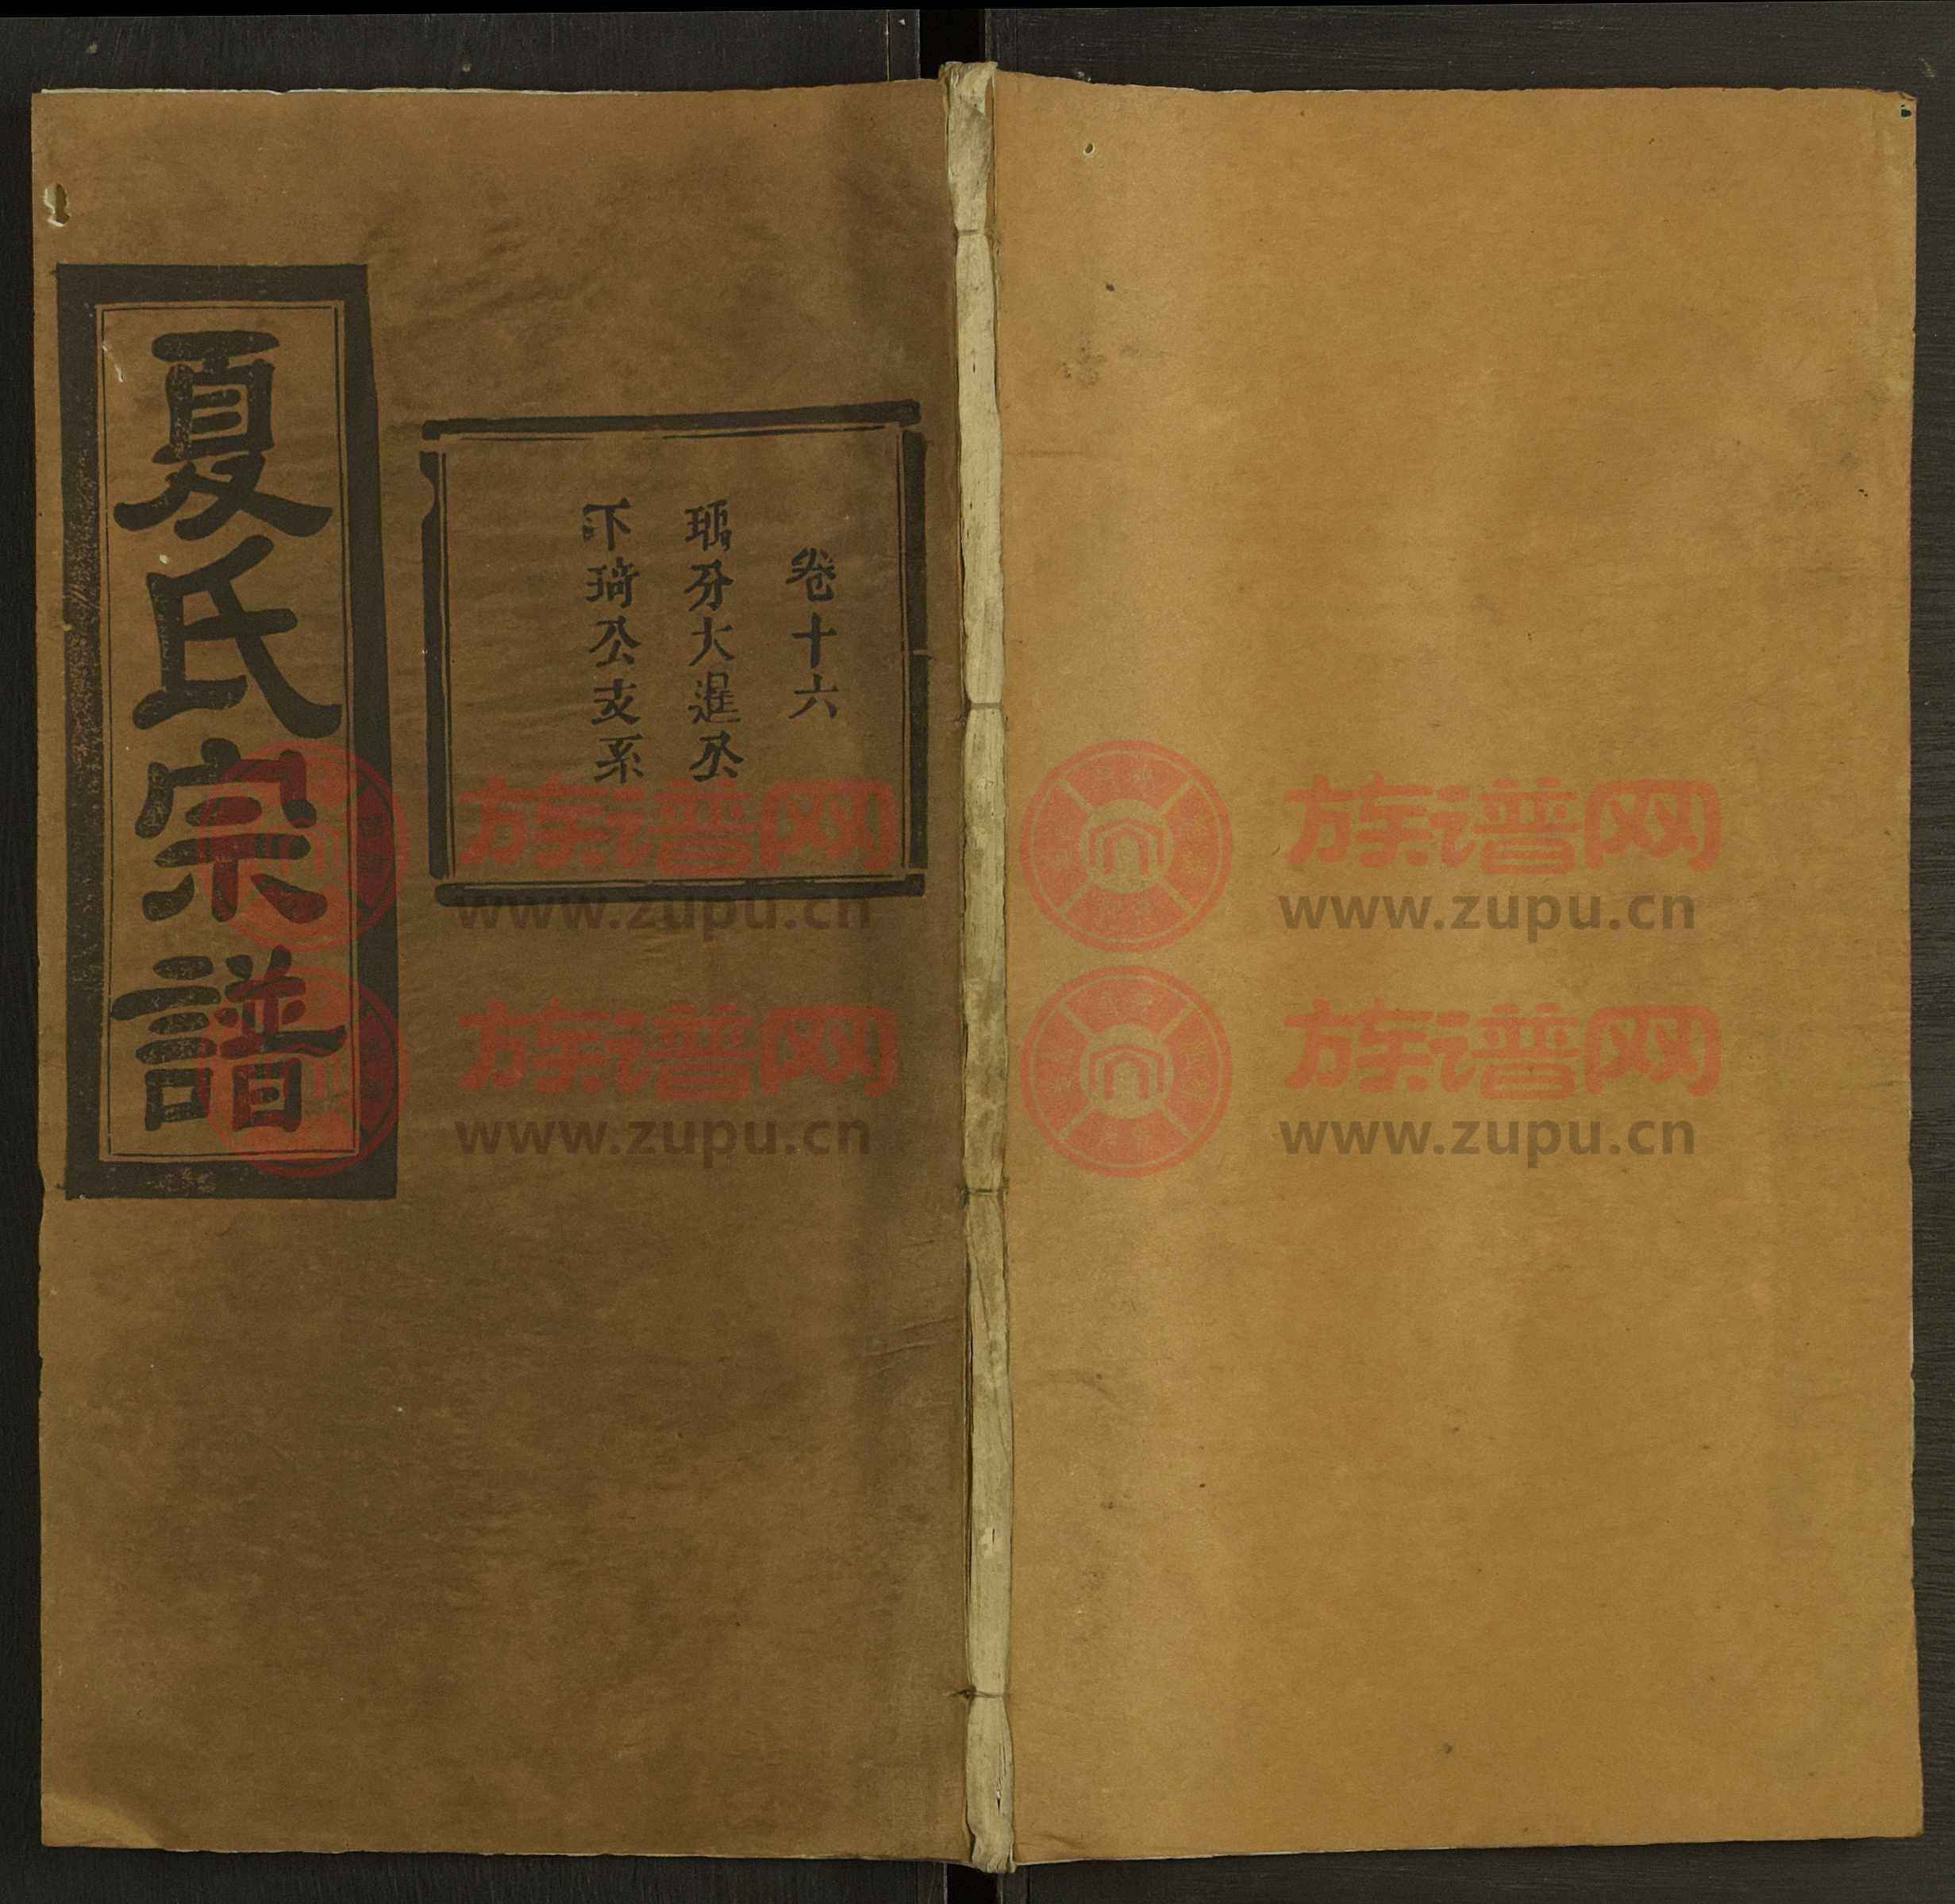 夏氏宗譜
卷十六
分大暹公
下琦公支系
族谱网
www.zupu.cn
族谱网
www.zupu.cn
族谱网
www.zupu.cn
族谱网
www.zupu.cn